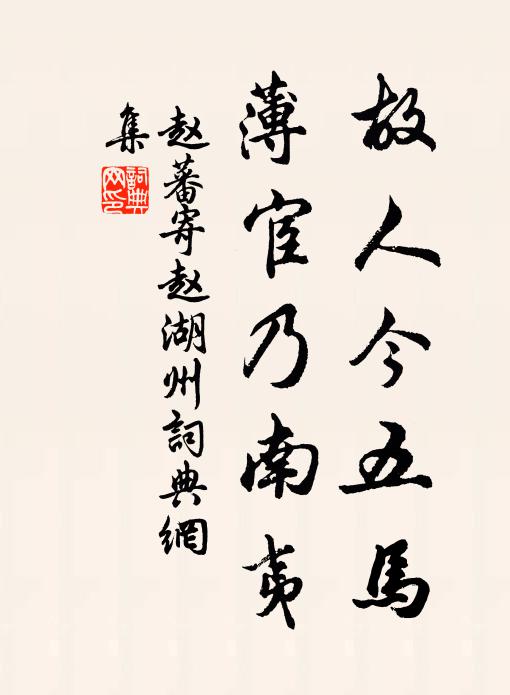 故人今五馬
薄宦乃南夷
赵蕃寄赵湖州詞典網
集
詞典网印